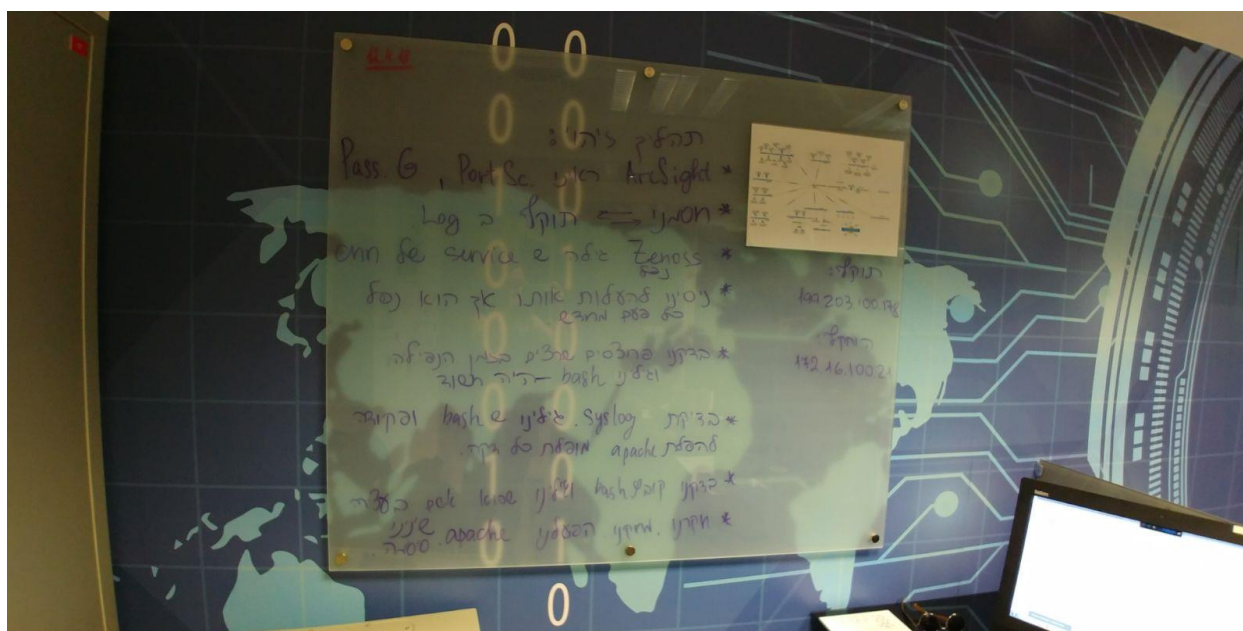 12.4.18
תהליך זיהוי:
* ArcSight ראינו Port Sc, Pass. G
* חסמנו <= תוקף ב Log
* Zenoss גילה ש service של חמס
נפל
* ניסינו להעלות אותו אך הוא נפל
כל פעם מחדש
* בדקנו פרוצסים שרצים בזמן הנפילה
וגילנו bash - היה חשוד
* בדיקת Syslog. גילינו ש bash ופקודה
להפלת apache מופלת כל דקה.
* בדקנו קובץ bash וגילינו שהוא אשם בעצה
* חקרנו. מחקנו הפעלנו apache. שינינו
סיסמה.
תוקף:
199.203.100.178
המותקף:
172.16.100.21